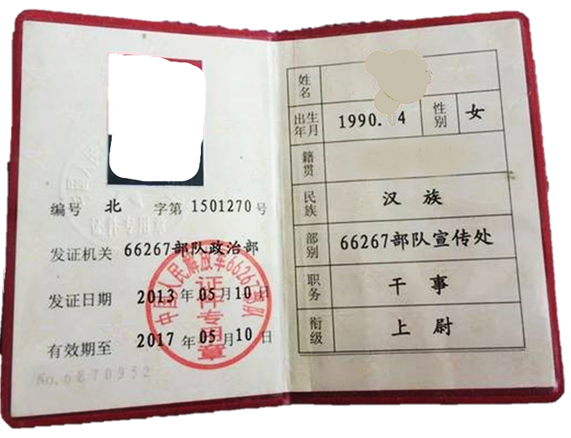 编号 北 字第 1501270 号
发证机关 66267部队政治部
发证日期 2013 年 05 月 10 日
有效期至 2017 年 05 月 10 日
No.6870952
中国人民解放军66267部队
证件专用章
姓名
出生年月 1990. 4 性别 女
籍贯
民族 汉族
部别 66267部队宣传处
职务 干事
衔级 上尉